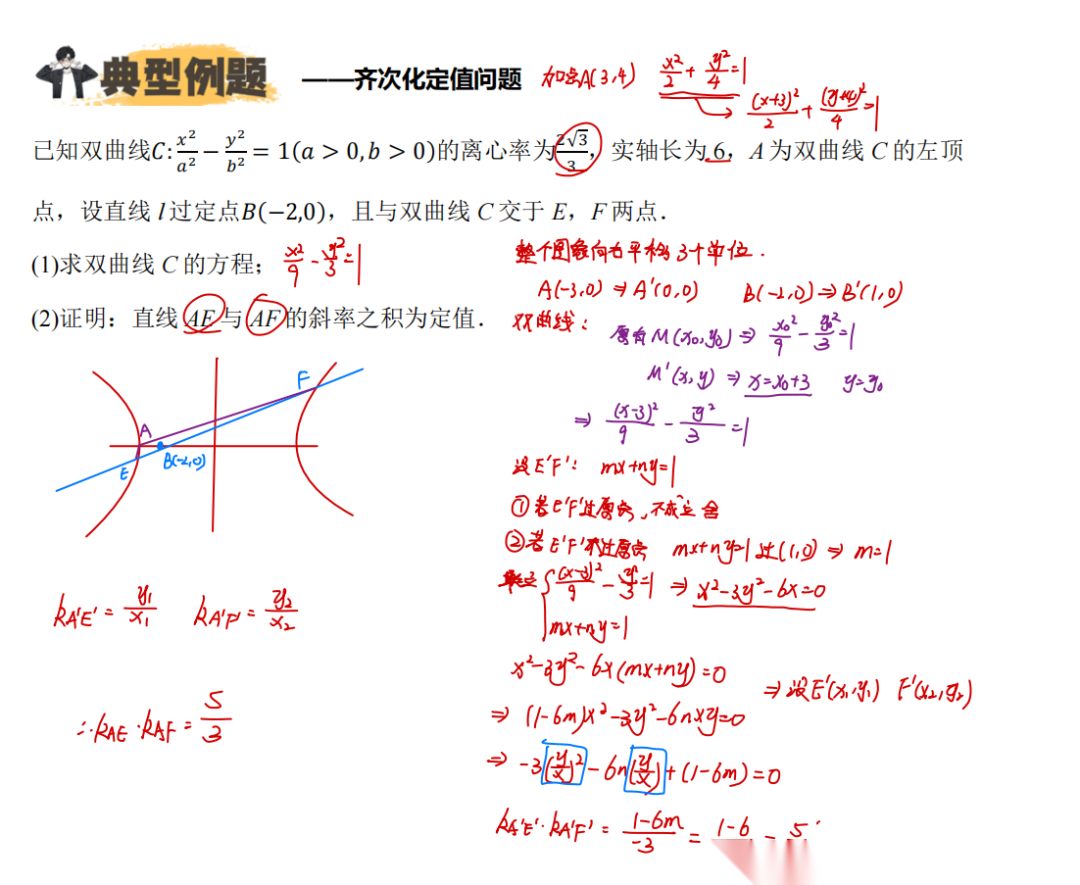 典型例题 ——齐次化定值问题 加点A(3,4) x²/2 + y²/4 = 1
(x+3)²/2 + (y+4)²/4 = 1
已知双曲线C: x²/a² − y²/b² = 1(a > 0, b > 0)的离心率为2√3/3，实轴长为 6，A 为双曲线 C 的左顶
点，设直线 l 过定点B(−2,0)，且与双曲线 C 交于 E，F 两点．
(1)求双曲线 C 的方程； x²/9 − y²/3 = 1
(2)证明：直线 AE 与 AF 的斜率之积为定值．
F
A
E
B(-2,0)
k_A'E' = y₁/x₁ k_A'F' = y₂/x₂
∴ k_AE · k_AF = 5/3
整个图象向右平移3个单位.
A(-3,0) ⇒ A'(0,0) B(-2,0) ⇒ B'(1,0)
双曲线：
M(x₀,y₀) ⇒ x₀²/9 − y₀²/3 = 1
M'(x,y) ⇒ x=x₀+3 y=y₀
⇒ (x-3)²/9 − y²/3 = 1
设E'F'： mx+ny=1
①若E'F'过原点，不成立舍
②若E'F'不过原点 mx+ny=1 过(1,0) ⇒ m=1
联立 { (x-3)²/9 − y²/3 = 1 ⇒ x²-3y²-6x=0
mx+ny=1
x²-3y²-6x(mx+ny)=0
⇒ 设E'(x₁,y₁) F'(x₂,y₂)
⇒ (1-6m)x²-3y²-6nxy=0
⇒ -3(y/x)²-6n(y/x)+(1-6m)=0
k_A'E' · k_A'F' = (1-6m)/-3 = 1-6 = 5